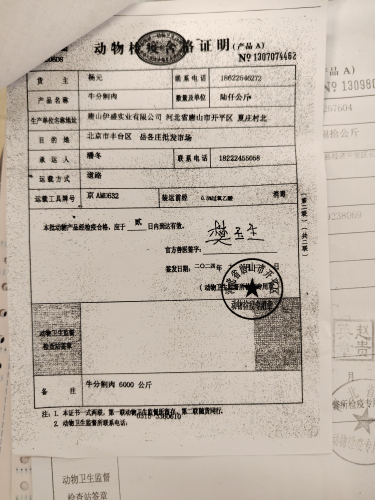 动物检疫合格证明(产品 A)
№ 1307074462
货 主 杨元 联系电话 18622546272
产品名称 牛分割肉 数量及单位 陆仟公斤
生产单位名称地址 唐山伊盛实业有限公司 河北省唐山市开平区 夏庄村北
目的地 北京市丰台区 岳各庄批发市场
承运人 潘冬 联系电话 18222455068
运载方式 道路
运载工具牌号 京AM0632 装运前经 0.3%过氧乙酸 消毒
本批动物产品经检疫合格，应于 贰 日内到达有效。
官方兽医签字:
签发日期: 二〇二四
(动物卫生监督所检疫专用章)
动物卫生监督
检查站签章
备 注 牛分割肉 6000 公斤
注: 1. 本证书一式两联，第一联动物卫生监督所留存，第二联随货同行。
2. 动物卫生监督所联系电话: 0315 3380610
(第二联)(共二联)
产品 A)
№ 13098
257604
拾公斤
238069
赵
贵
动物卫生监督
检查站签章